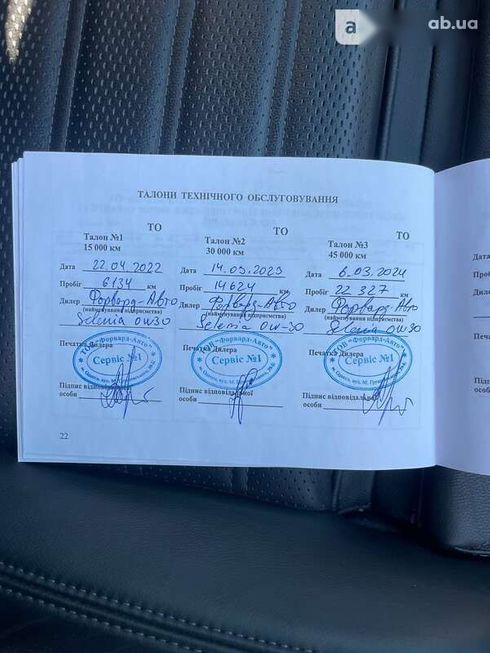 a ab.ua
ТАЛОНИ ТЕХНІЧНОГО ОБСЛУГОВУВАННЯ
ТО
Талон №1
15 000 км
Дата 22.04.2022
Пробіг 6134 км
Дилер Форвард-Авто
(найменування підприємства)
Selenia 0W30
Печатка Дилера
ТОВ "Форвард-Авто"
Сервіс №1
Підпис відповідальної
особи
ТО
Талон №2
30 000 км
Дата 14.03.2023
Пробіг 14624 км
Дилер Форвард-Авто
(найменування підприємства)
Selenia 0W-30
Печатка Дилера
ТОВ "Форвард-Авто"
Сервіс №1
Підпис відповідальної
особи
ТО
Талон №3
45 000 км
Дата 6.03.2024
Пробіг 22 327 км
Дилер Форвард Авто
(найменування підприємства)
Selenia 0W30
Печатка Дилера
ТОВ "Форвард-Авто"
Сервіс №1
Підпис відповідальної
особи
22